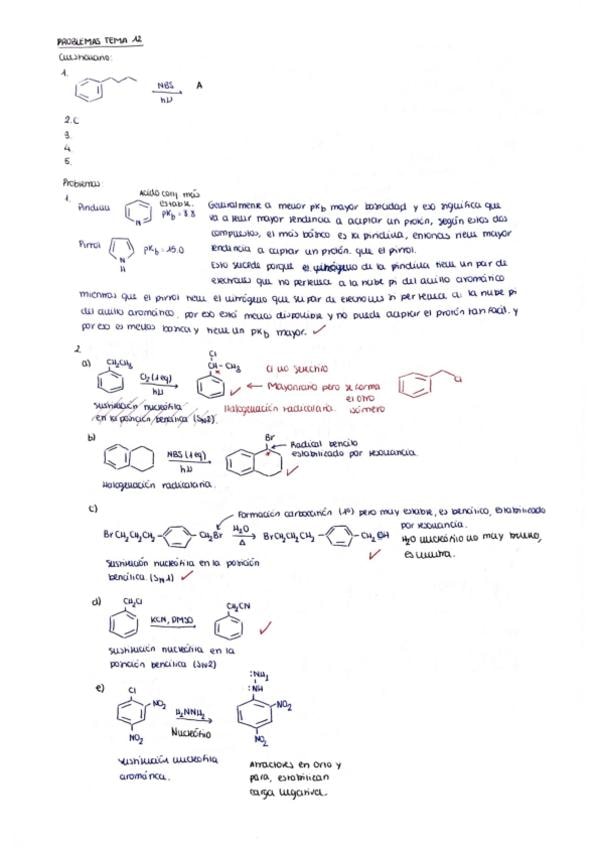 PROBLEMAS TEMA 12
Cuestionario:
1.
NBS
hν
A
2. C
3.
4.
5.
Problemas
1.
Ácido conj. más
estable.
Piridina
N
pKb = 8.8
Pirrol
N
H
pKb = 15.0
Generalmente a menor pKb mayor basicidad y eso significa que
va a tener mayor tendencia a aceptar un protón, según estos dos
compuestos, el más básico es la piridina, entonces tiene mayor
tendencia a captar un protón que el pirrol.
Esto sucede porque el nitrógeno de la piridina tiene un par de
electrones que no pertenece a la nube pi del anillo aromático
mientras que el pirrol tiene el nitrógeno que su par de electrones si pertenece a la nube pi
del anillo aromático, por eso está menos disponible y no puede aceptar el protón tan fácil y
por eso es menos básica y tiene un pKb mayor. ✓
2.
a)
CH2CH3
Cl2 (1 eq)
hν
Cl
CH - CH3
*
✓
Cl no selectivo
← Mayoritario pero se forma
el otro
isómero
Cl
sustitución nucleófila
en la posición bencílica (SN2).
Halogenación radicalaria.
b)
NBS (1 eq)
hν
Br
*
✓
Radical bencilo
estabilizado por resonancia.
Halogenación radicalaria.
c)
Formación carbocatión (1º) pero muy estable, es bencílico, estabilizado
por resonancia.
BrCH2CH2CH2 - CH2Br
H2O
Δ
BrCH2CH2CH2 - CH2OH
✓
H2O nucleófilo no muy bueno,
es neutra.
sustitución nucleófila en la posición
bencílica (SN1) ✓
d)
CH2Cl
KCN, DMSO
CH2CN
✓
sustitución nucleófila en la
posición bencílica (SN2)
e)
Cl
NO2
NO2
H2NNH2
Nucleófilo
:NH2
:NH
NO2
NO2
sustitución nucleófila
aromática.
Atractores en orto y
para, estabilizan
carga negativa.